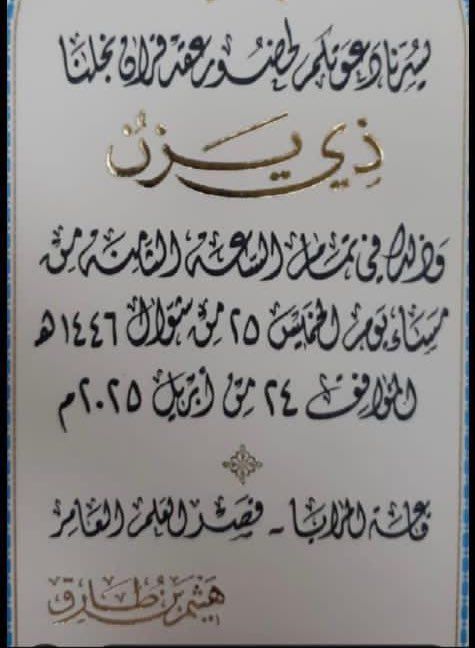 يسرنا دعوتكم لحضور عقد قران نجلنا
ذي يزن
وذلك في تمام الساعة الثامنة من
مساء يوم الخميس ٢٥ من شوال ١٤٤٦هـ
الموافق ٢٤ من أبريل ٢٠٢٥م
قاعة المزايا - قصر العلم العامر
هيثم بن طارق